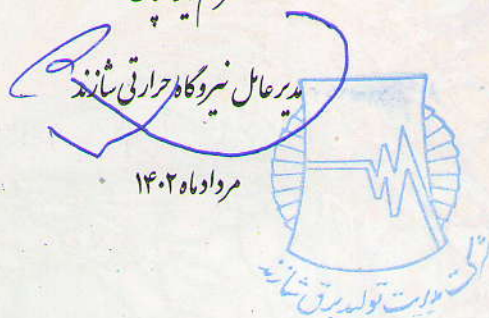 مدیرعامل نیروگاه حرارتی شازند
مردادماه ۱۴۰۲
مدیریت تولید برق شازند